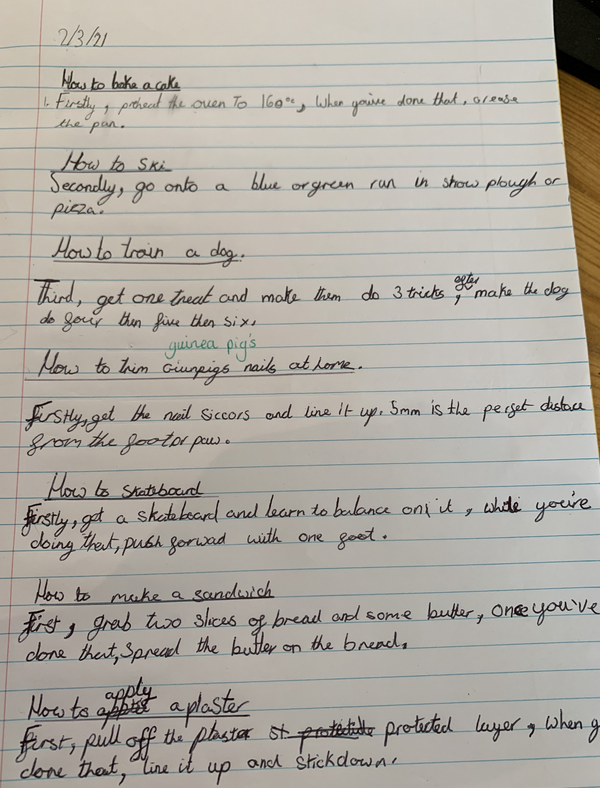 2/3/21
How to bake a cake
1. Firstly, preheat the oven To 160°c, When you've done that, grease
the pan.
How to Ski
Secondly, go onto a blue or green run in snow plough or
pizza.
How to train a dog.
Third, get one treat and make them do 3 tricks, after make the dog
do four then five then six.
guinea pig's
How to trim Giunpigs nails at home.
Firstly, get the nail siccors and line it up. 5mm is the perfet distace
from the foot or paw.
How to Skateboard
Firstly, get a skateboard and learn to balance on it, while you're
doing that, push forwad with one foot.
How to make a sandwich
First, grab two slices of bread and some butter, Once you've
done that, Spread the butter on the bread.
apply
How to a plaster
First, pull off the plaster protected layer, when
done that, line it up and stickdown.